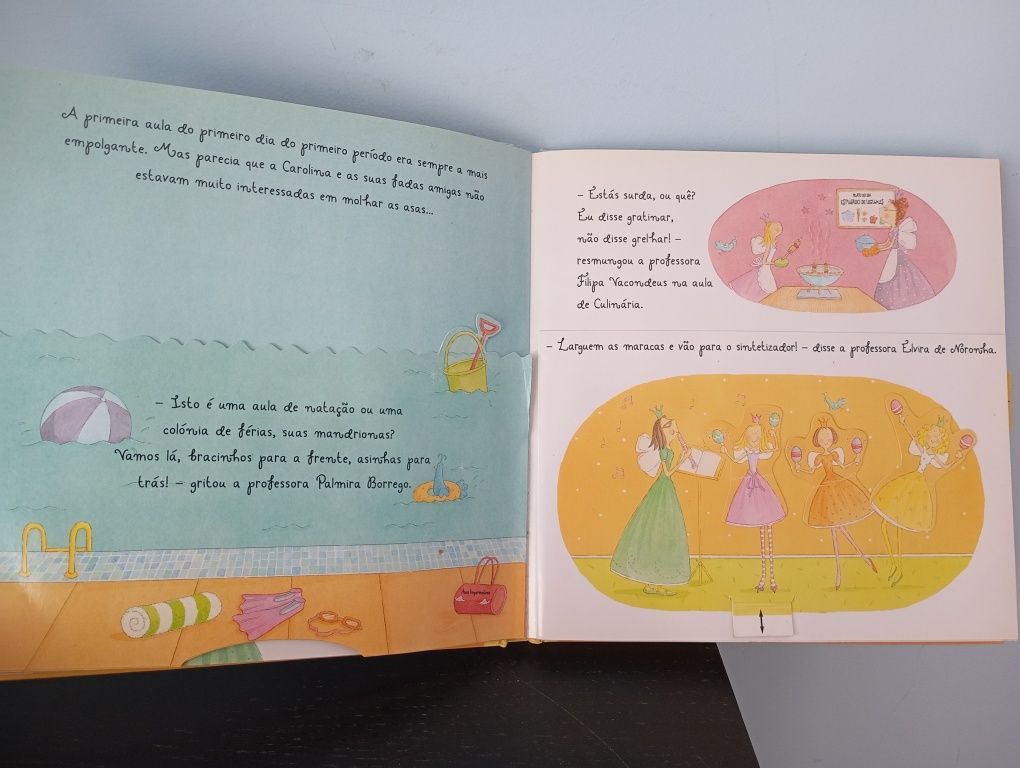 A primeira aula do primeiro dia do primeiro período era sempre a mais
empolgante. Mas parecia que a Carolina e as suas fadas amigas não
estavam muito interessadas em molhar as asas...
– Isto é uma aula de natação ou uma
colónia de férias, suas mandrionas?
Vamos lá, bracinhos para a frente, asinhas para
trás! – gritou a professora Palmira Borrego.
– Estás surda, ou quê?
Eu disse gratinar,
não disse grelhar! –
resmungou a professora
Filipa Vacondeus na aula
de Culinária.
– Larguem as maracas e vão para o sintetizador! – disse a professora Elvira de Noronha.